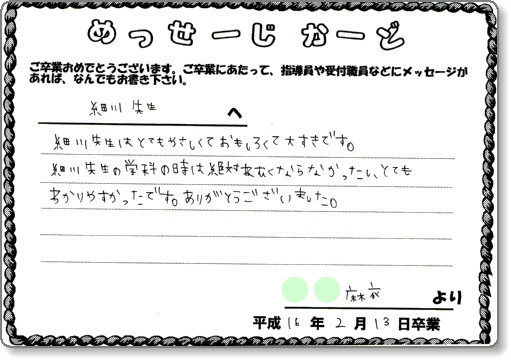 めっせーじかーど
ご卒業おめでとうございます。ご卒業にあたって、指導員や受付職員などにメッセージが
あれば、なんでもお書き下さい。
細川 先生 へ
細川先生はとてもやさしくておもしろくて大すきです。
細川先生の学科の時は絶対ねむくならなかったし、とても
わかりやすかったです。ありがとうございました。
麻衣 より
平成 16 年 2 月 13 日卒業